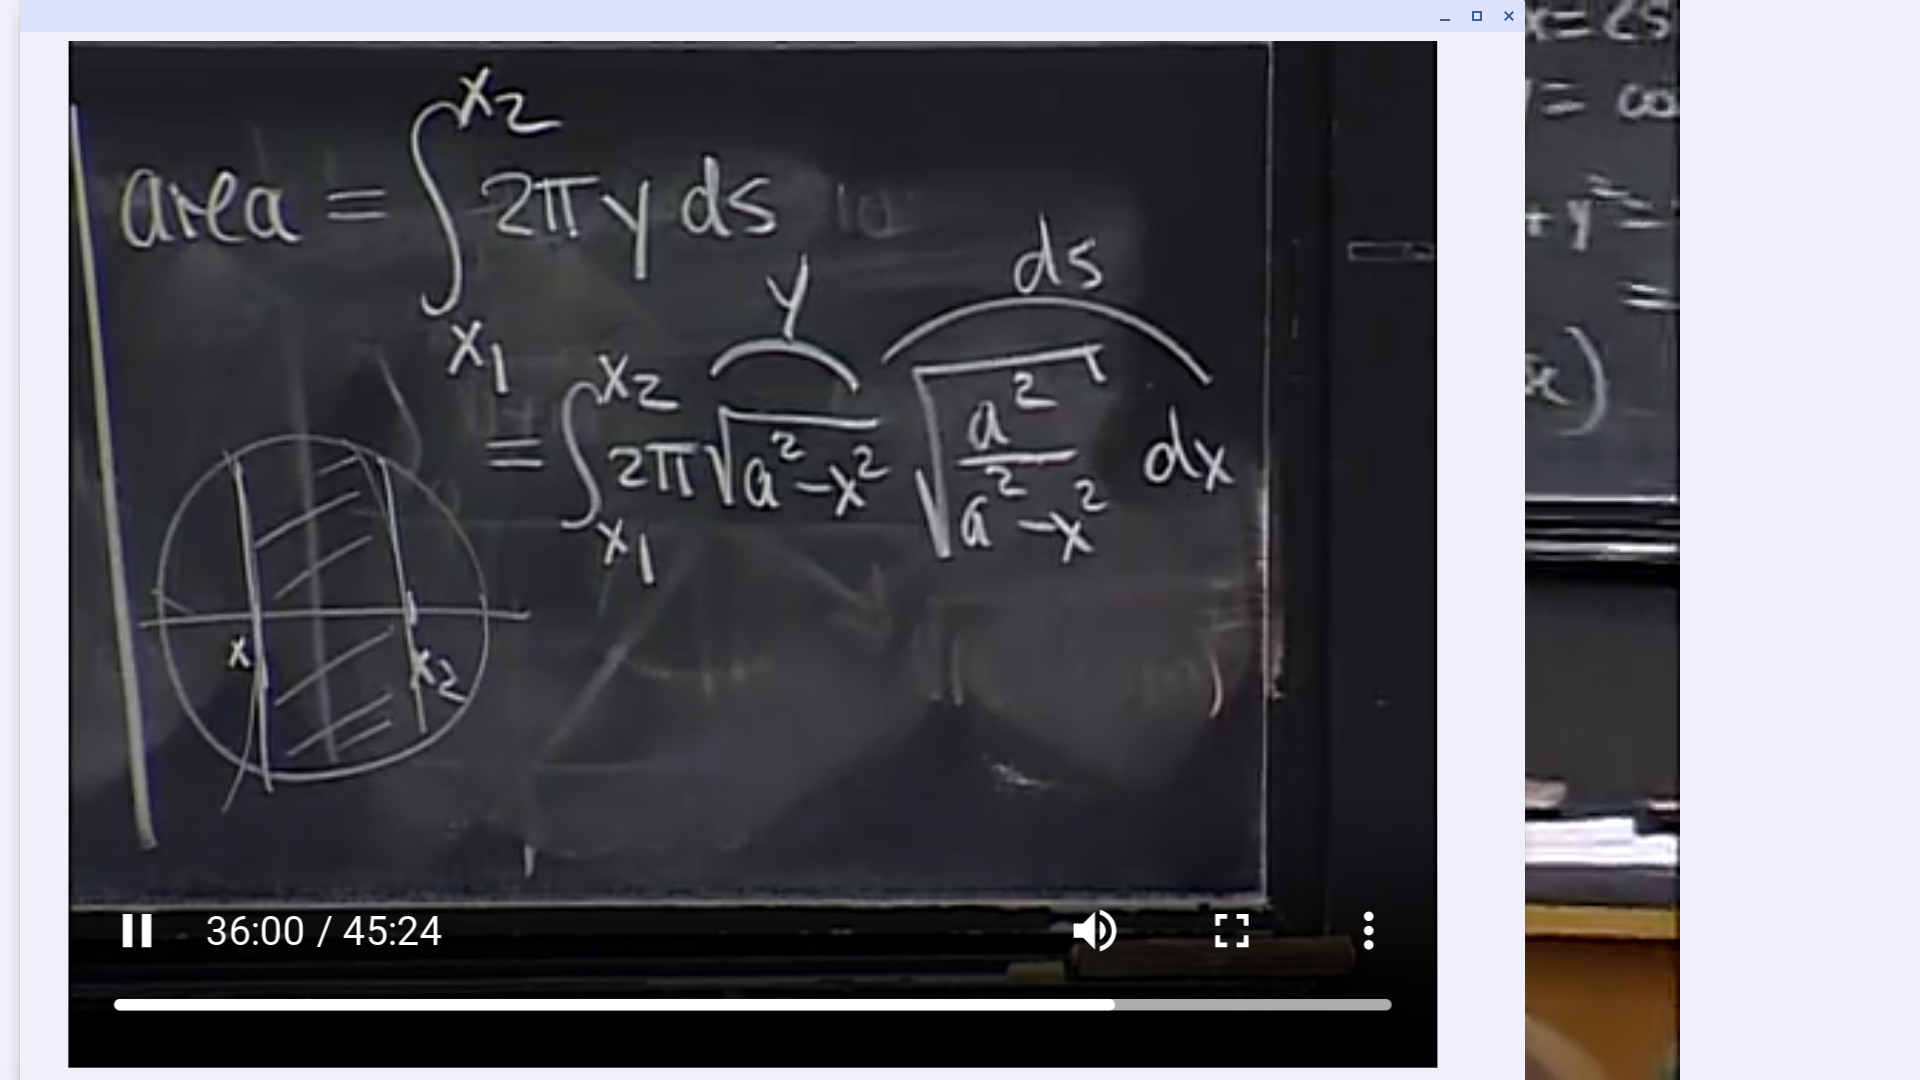 area = ∫_{x₁}^{x₂} 2π y ds
y ds
= ∫_{x₁}^{x₂} 2π √(a²-x²) √(a²/(a²-x²)) dx
x x₂
36:00 / 45:24
+ y² =
=